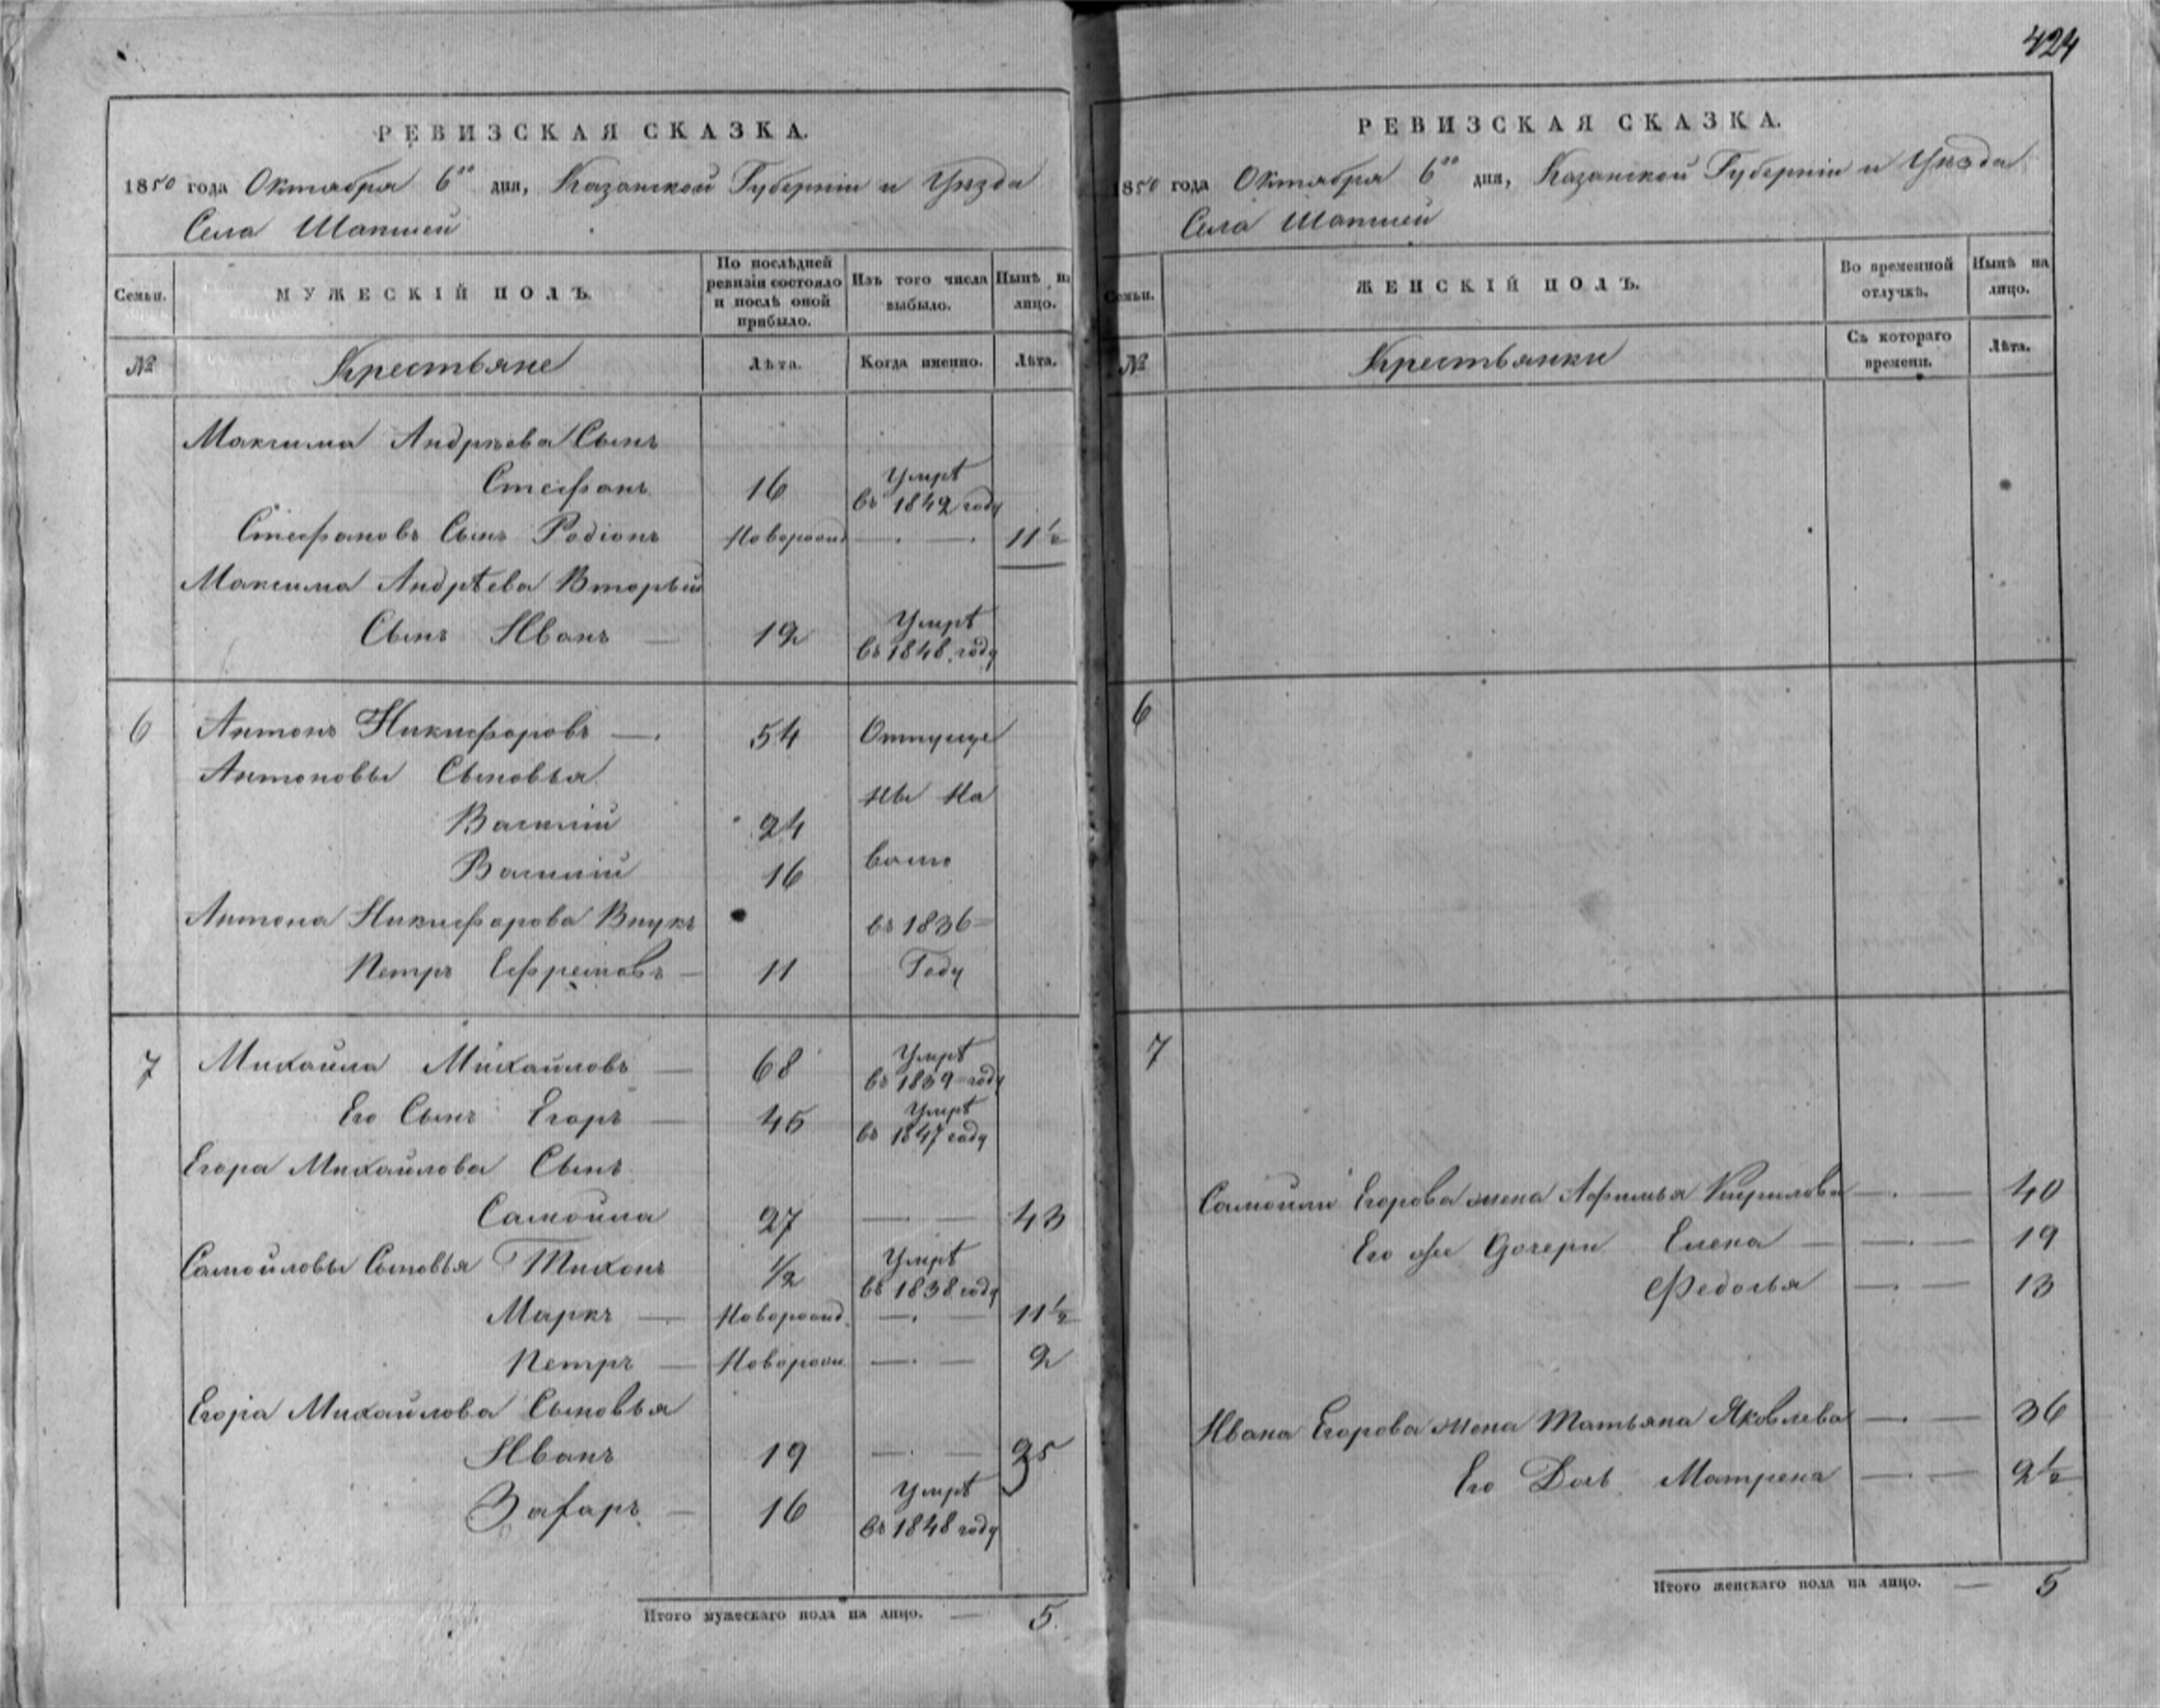 424
РЕВИЗСКАЯ СКАЗКА.
1850 года Октября 6го дня, Казанской Губернiи и Уѣзда
Села Шапшей
Семьи.
МУЖЕСКIЙ ПОЛЪ.
По послѣдней ревизiи состояло и послѣ оной прибыло.
Изъ того числа выбыло.
Нынѣ на лицо.
№
Крестьяне
Лѣта.
Когда именно.
Лѣта.
Максима Андрѣева Сынъ
Стефанъ 16 Умрѣ въ 1842 году
Стефановъ Сынъ Родiонъ Новорожд — . — . 11 1/2
Максима Андрѣева Вторый
Сынъ Иванъ — 12 Умрѣ въ 1848 году
6 Антонъ Никифоровъ — . 54 Отпуще
Антоновы Сыновья
ны на
Василiй 24
Василiй 16 волю
Антона Никифорова Внукъ въ 1836 =
Петръ Ефремовъ — 11 Году
7 Михайла Михайловъ — 68 Умрѣ въ 1839 году
Его Сынъ Егоръ — 45 Умрѣ въ 1847 году
Егора Михайлова Сынъ
Самойла 27 — . — 43
Самойловы Сыновья Тихонъ 1/2 Умрѣ въ 1838 году
Маркъ — Новорожд. — . — 11 1/2
Петръ — Новорож — . — 2
Егора Михайлова Сыновья
Иванъ 19 — . — 35
Захаръ — 16 Умрѣ въ 1848 году
Итого мужескаго пола на лицо. — 5.
РЕВИЗСКАЯ СКАЗКА.
1850 года Октября 6го дня, Казанской Губернiи и Уѣзда
Села Шапшей
Семьи.
ЖЕНСКIЙ ПОЛЪ.
Во временной отлучкѣ.
Нынѣ на лицо.
№
Крестьянки
Съ котораго времени.
Лѣта.
6
7
Самойли Егорова жена Афимья Кирилова — . — 40
Его же Дочери Елена — — . — 19
Федосья — . — 13
Ивана Егорова жена Татьяна Яковлева — . — 36
Его Дочь Матрена — . — 2 1/2
Итого женскаго пола на лицо. — 5